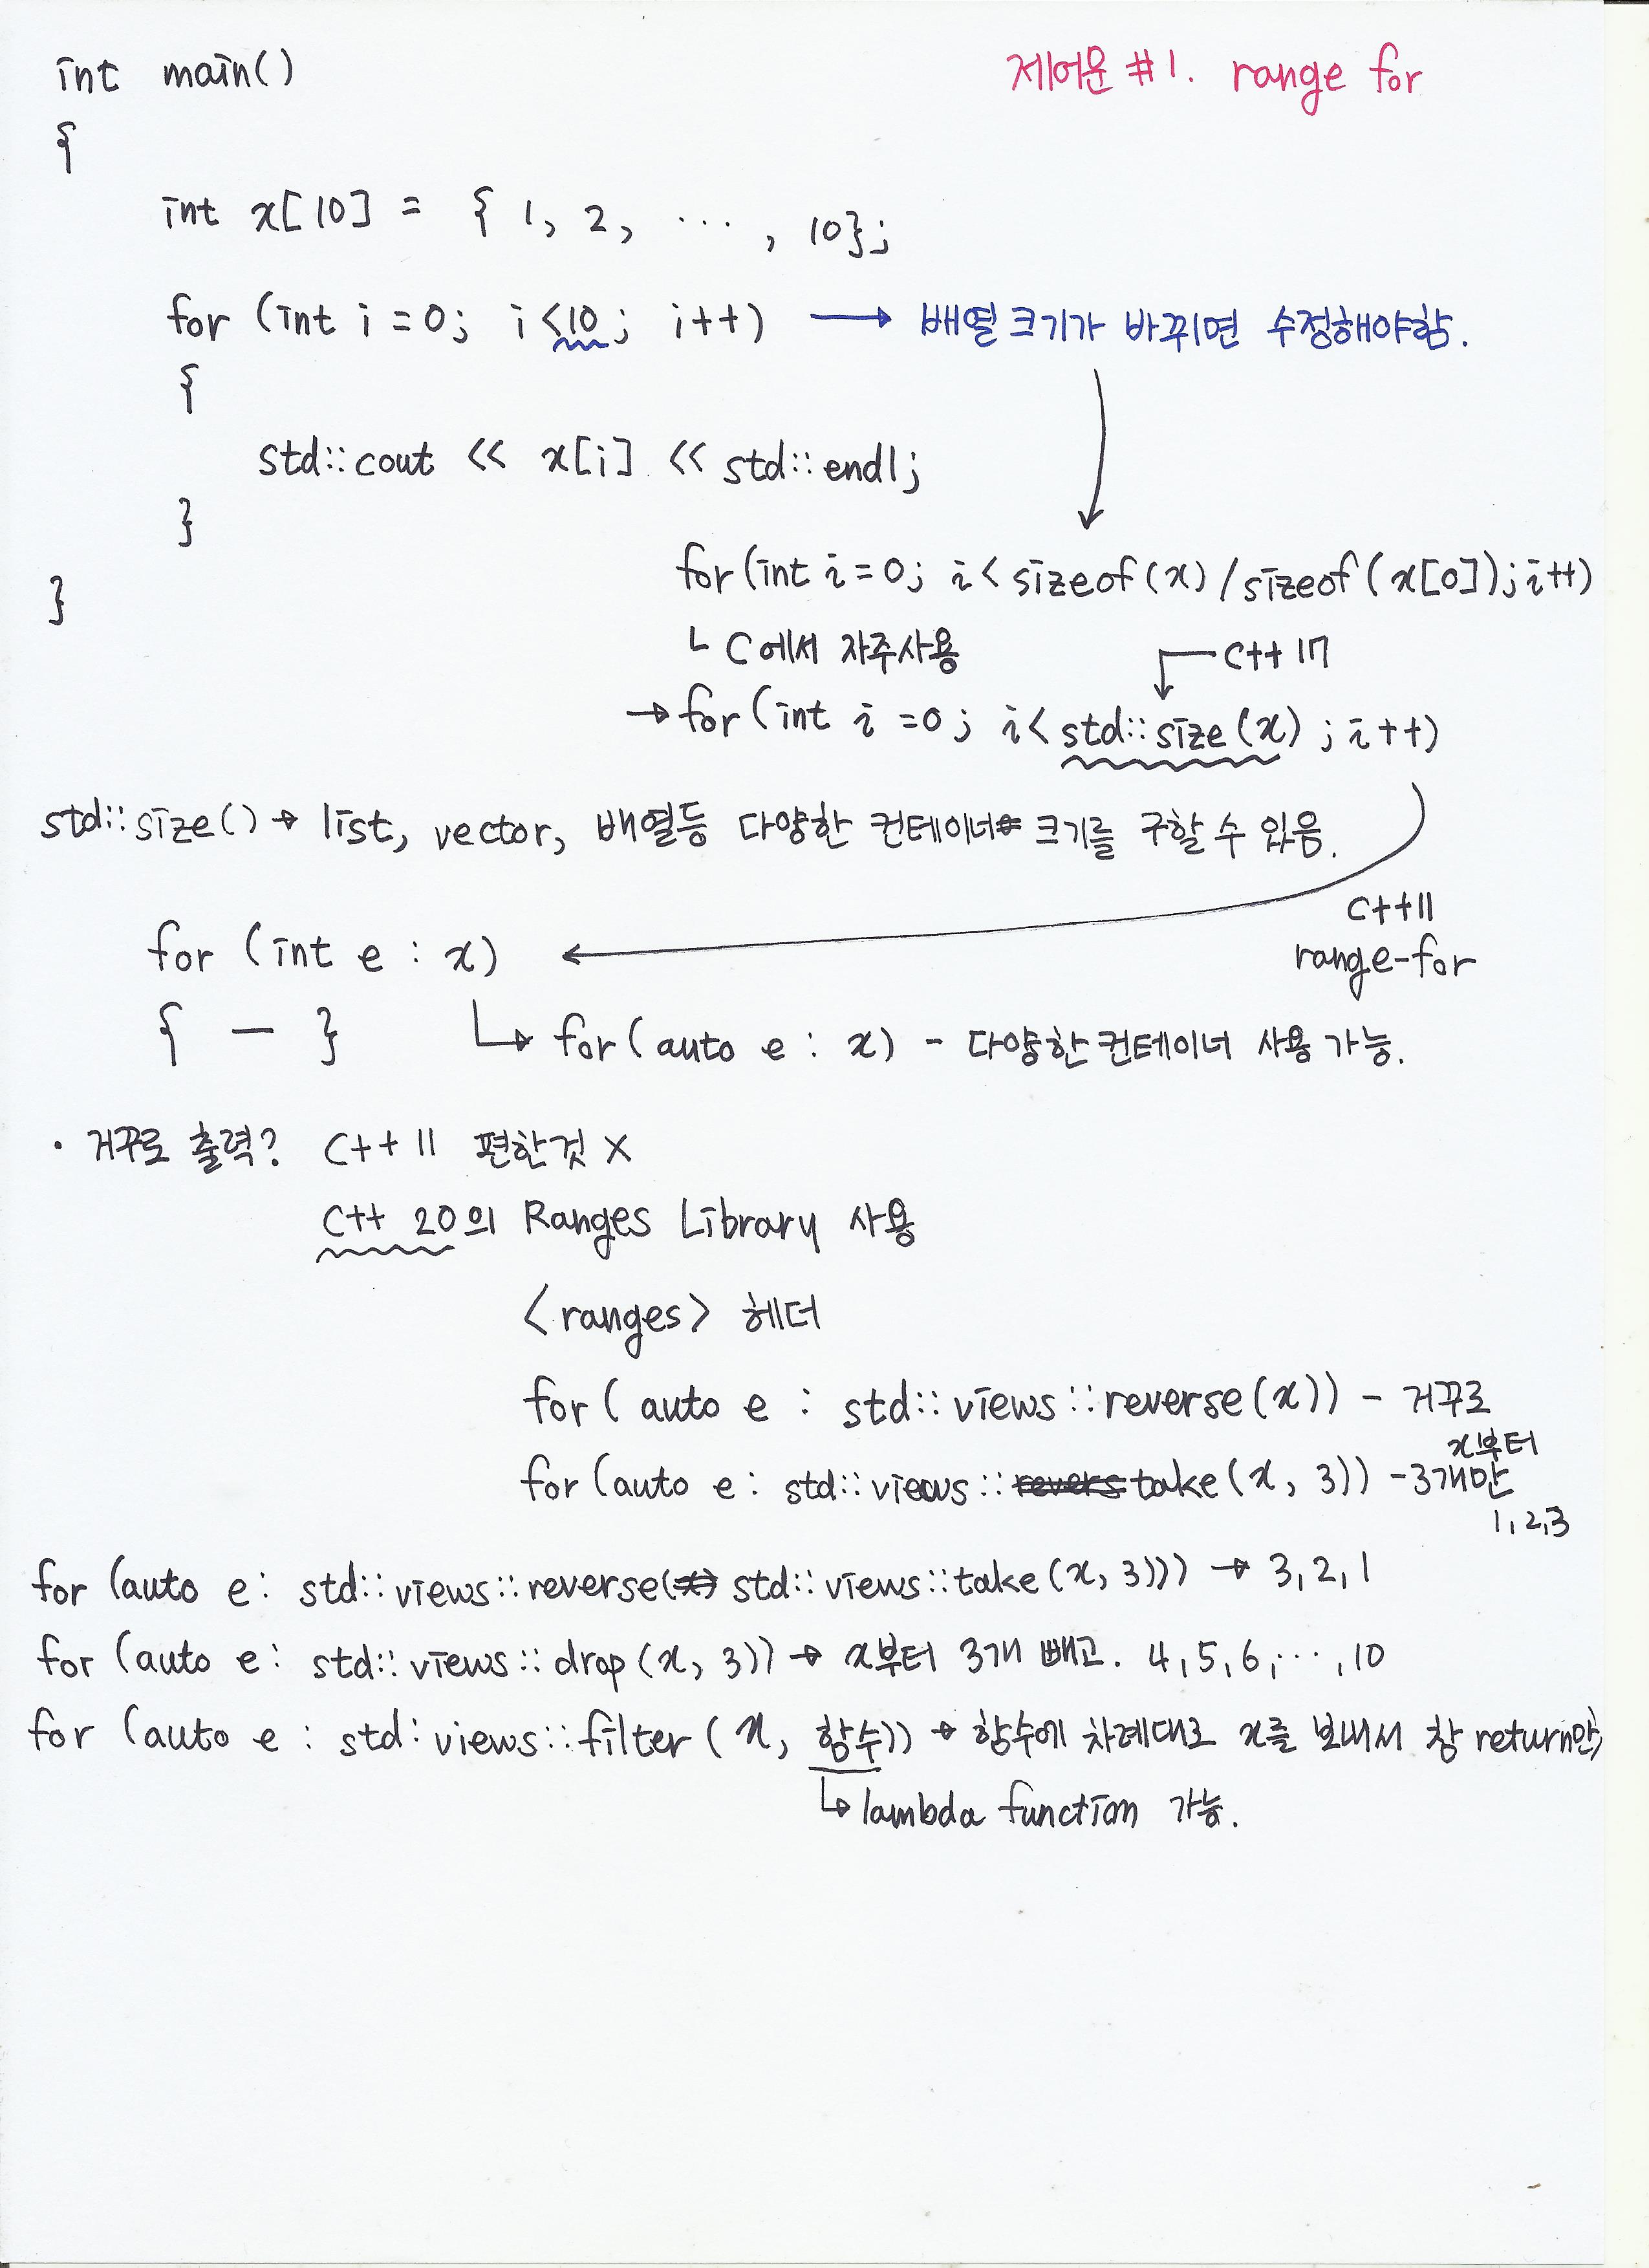 제어문 #1. range for
int main()
{
int x[10] = { 1, 2, ... , 10};
for (int i=0; i<10; i++) → 배열 크기가 바뀌면 수정해야함.
{
std::cout << x[i] << std::endl;
}
}
for(int i=0; i<sizeof(x)/sizeof(x[0]);i++)
ㄴ C에서 자주사용
C++17
→for(int i=0; i<std::size(x);i++)
std::size()→ list, vector, 배열등 다양한 컨테이너 크기를 구할 수 있음.
C++11
range-for
for (int e : x)
{ — }
for(auto e : x) - 다양한 컨테이너 사용 가능.
· 거꾸로 출력? C++11 편한것 X
C++ 20의 Ranges Library 사용
<ranges> 헤더
for( auto e : std::views::reverse(x)) - 거꾸로
x부터
for(auto e: std::views::take(x, 3)) -3개만
1,2,3
for (auto e: std::views::reverse( std::views::take(x,3))) → 3,2,1
for (auto e: std::views::drop(x, 3)) → x부터 3개 빼고. 4,5,6,...,10
for (auto e : std:views::filter(x, 함수)) → 함수에 차례대로 x를 보내서 참 return만
lambda function 가능.